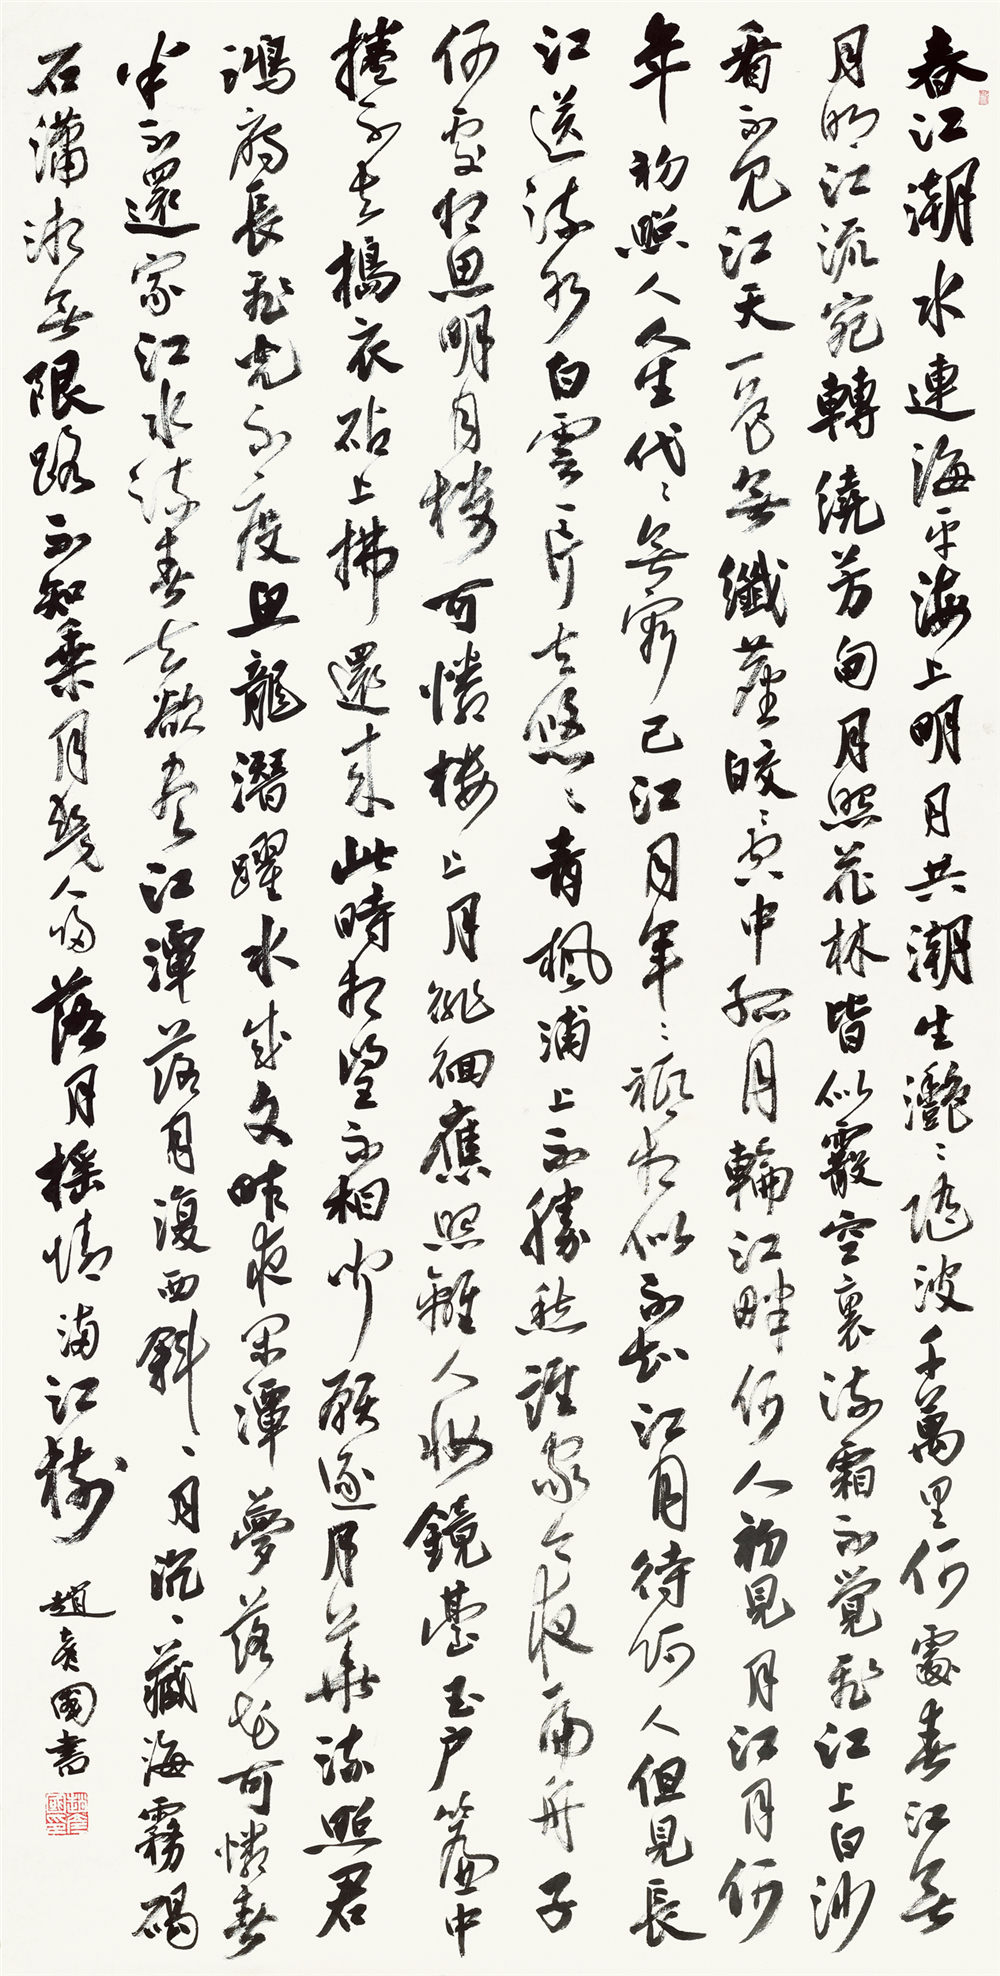 春江潮水連海平海上明月共潮生灧〻隨波千萬里何處春江無
月明江流宛轉繞芳甸月照花林皆似霰空裏流霜不覺飛江上白沙
看不見江天一色無纖塵皎〻空中孤月輪江畔何人初見月江月何
年初照人人生代〻無窮已江月年〻祇相似不知江月待何人但見長
江送流水白雲一片去悠〻青楓浦上不勝愁誰家今夜扁舟子
何處相思明月樓可憐樓上月徘徊應照離人妝鏡臺玉戶簾中
捲不去搗衣砧上拂還來此時相望不相聞願逐月華流照君
鴻雁長飛光不度魚龍潛躍水成文昨夜閑潭夢落花可憐春
半不還家江水流春去欲盡江潭落月復西斜〻月沉〻藏海霧碣
石瀟湘無限路不知乘月幾人歸落月搖情滿江樹
趙彥國書